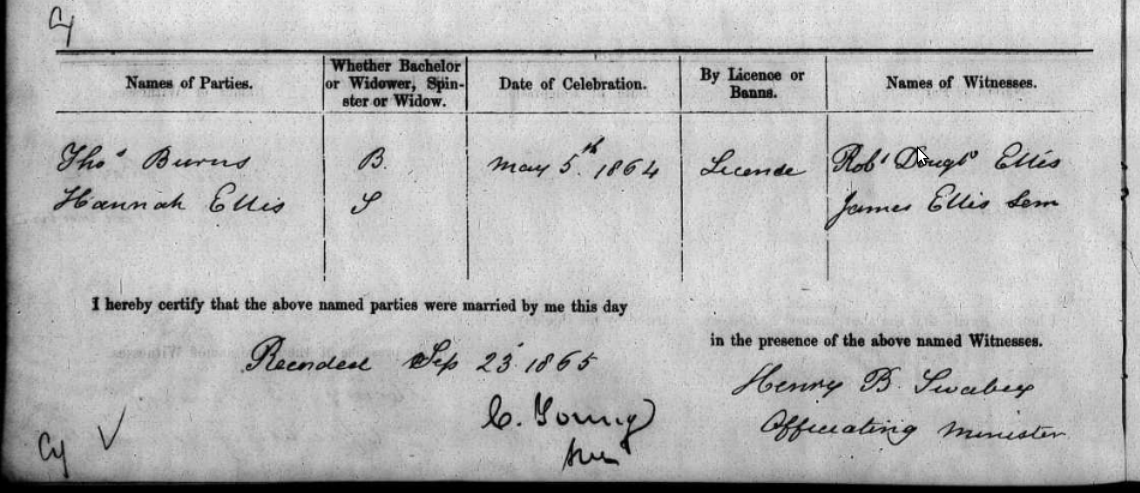 Cy
Names of Parties. Whether Bachelor or Widower, Spinster or Widow. Date of Celebration. By Licence or Banns. Names of Witnesses.
Thos Burns B. May 5th 1864 Licence Robt Dougls Ellis
Hannah Ellis S James Ellis Senr
I hereby certify that the above named parties were married by me this day
in the presence of the above named Witnesses.
Recorded Sep 23 1865
Henry B. Swabey
C. Young
Officiating Minister
Cy